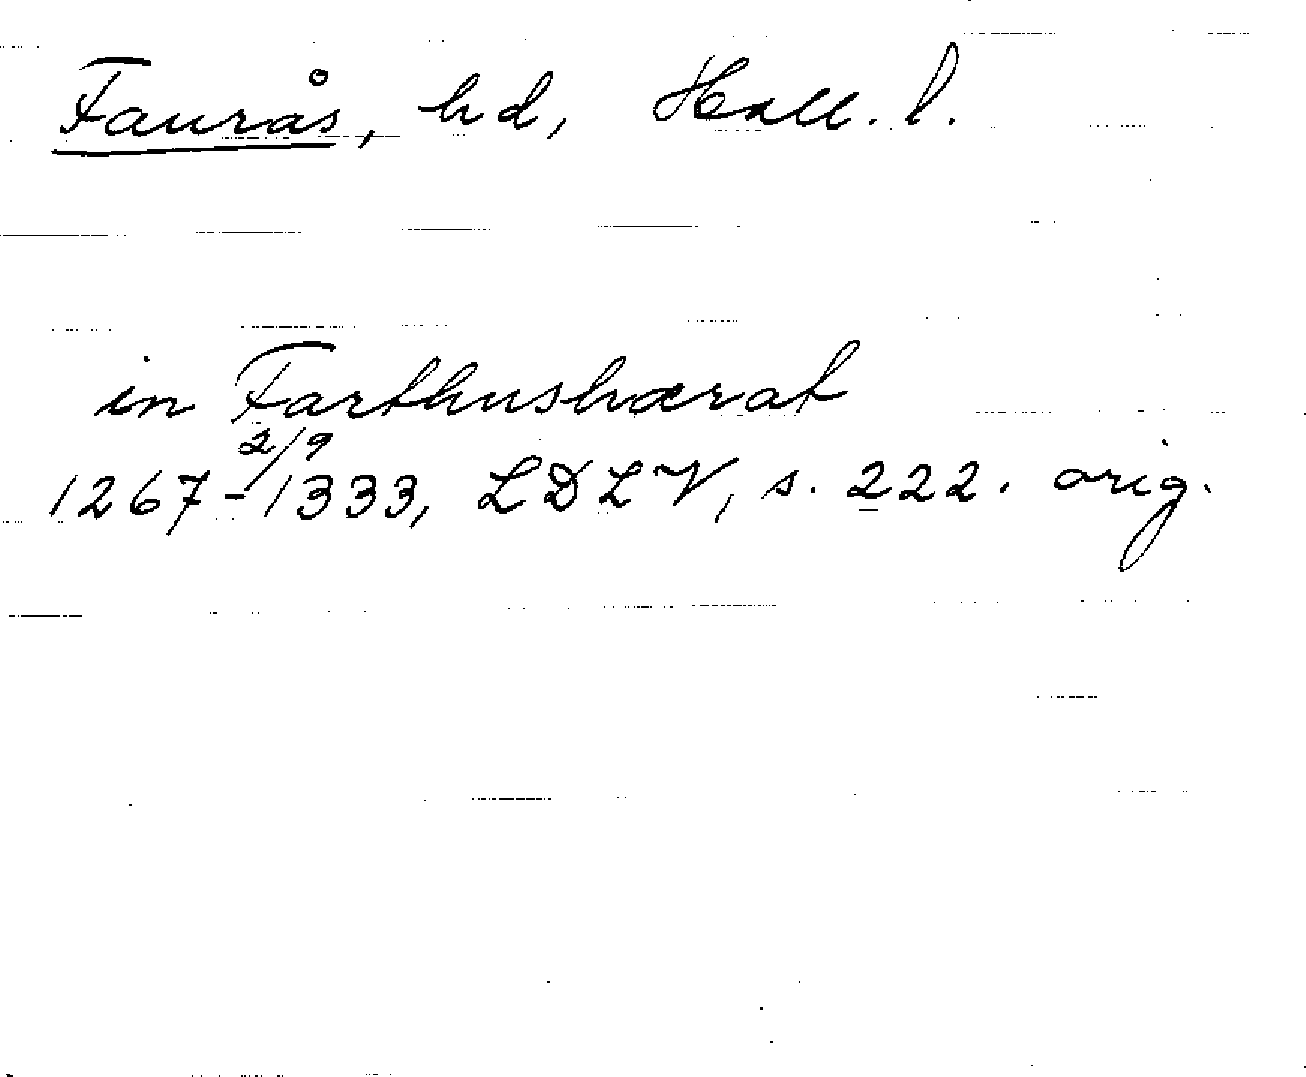 Faurås, hd, Hall. l.
in Farthushærat
2/9
1267-1333, LDLV, s. 222. orig.